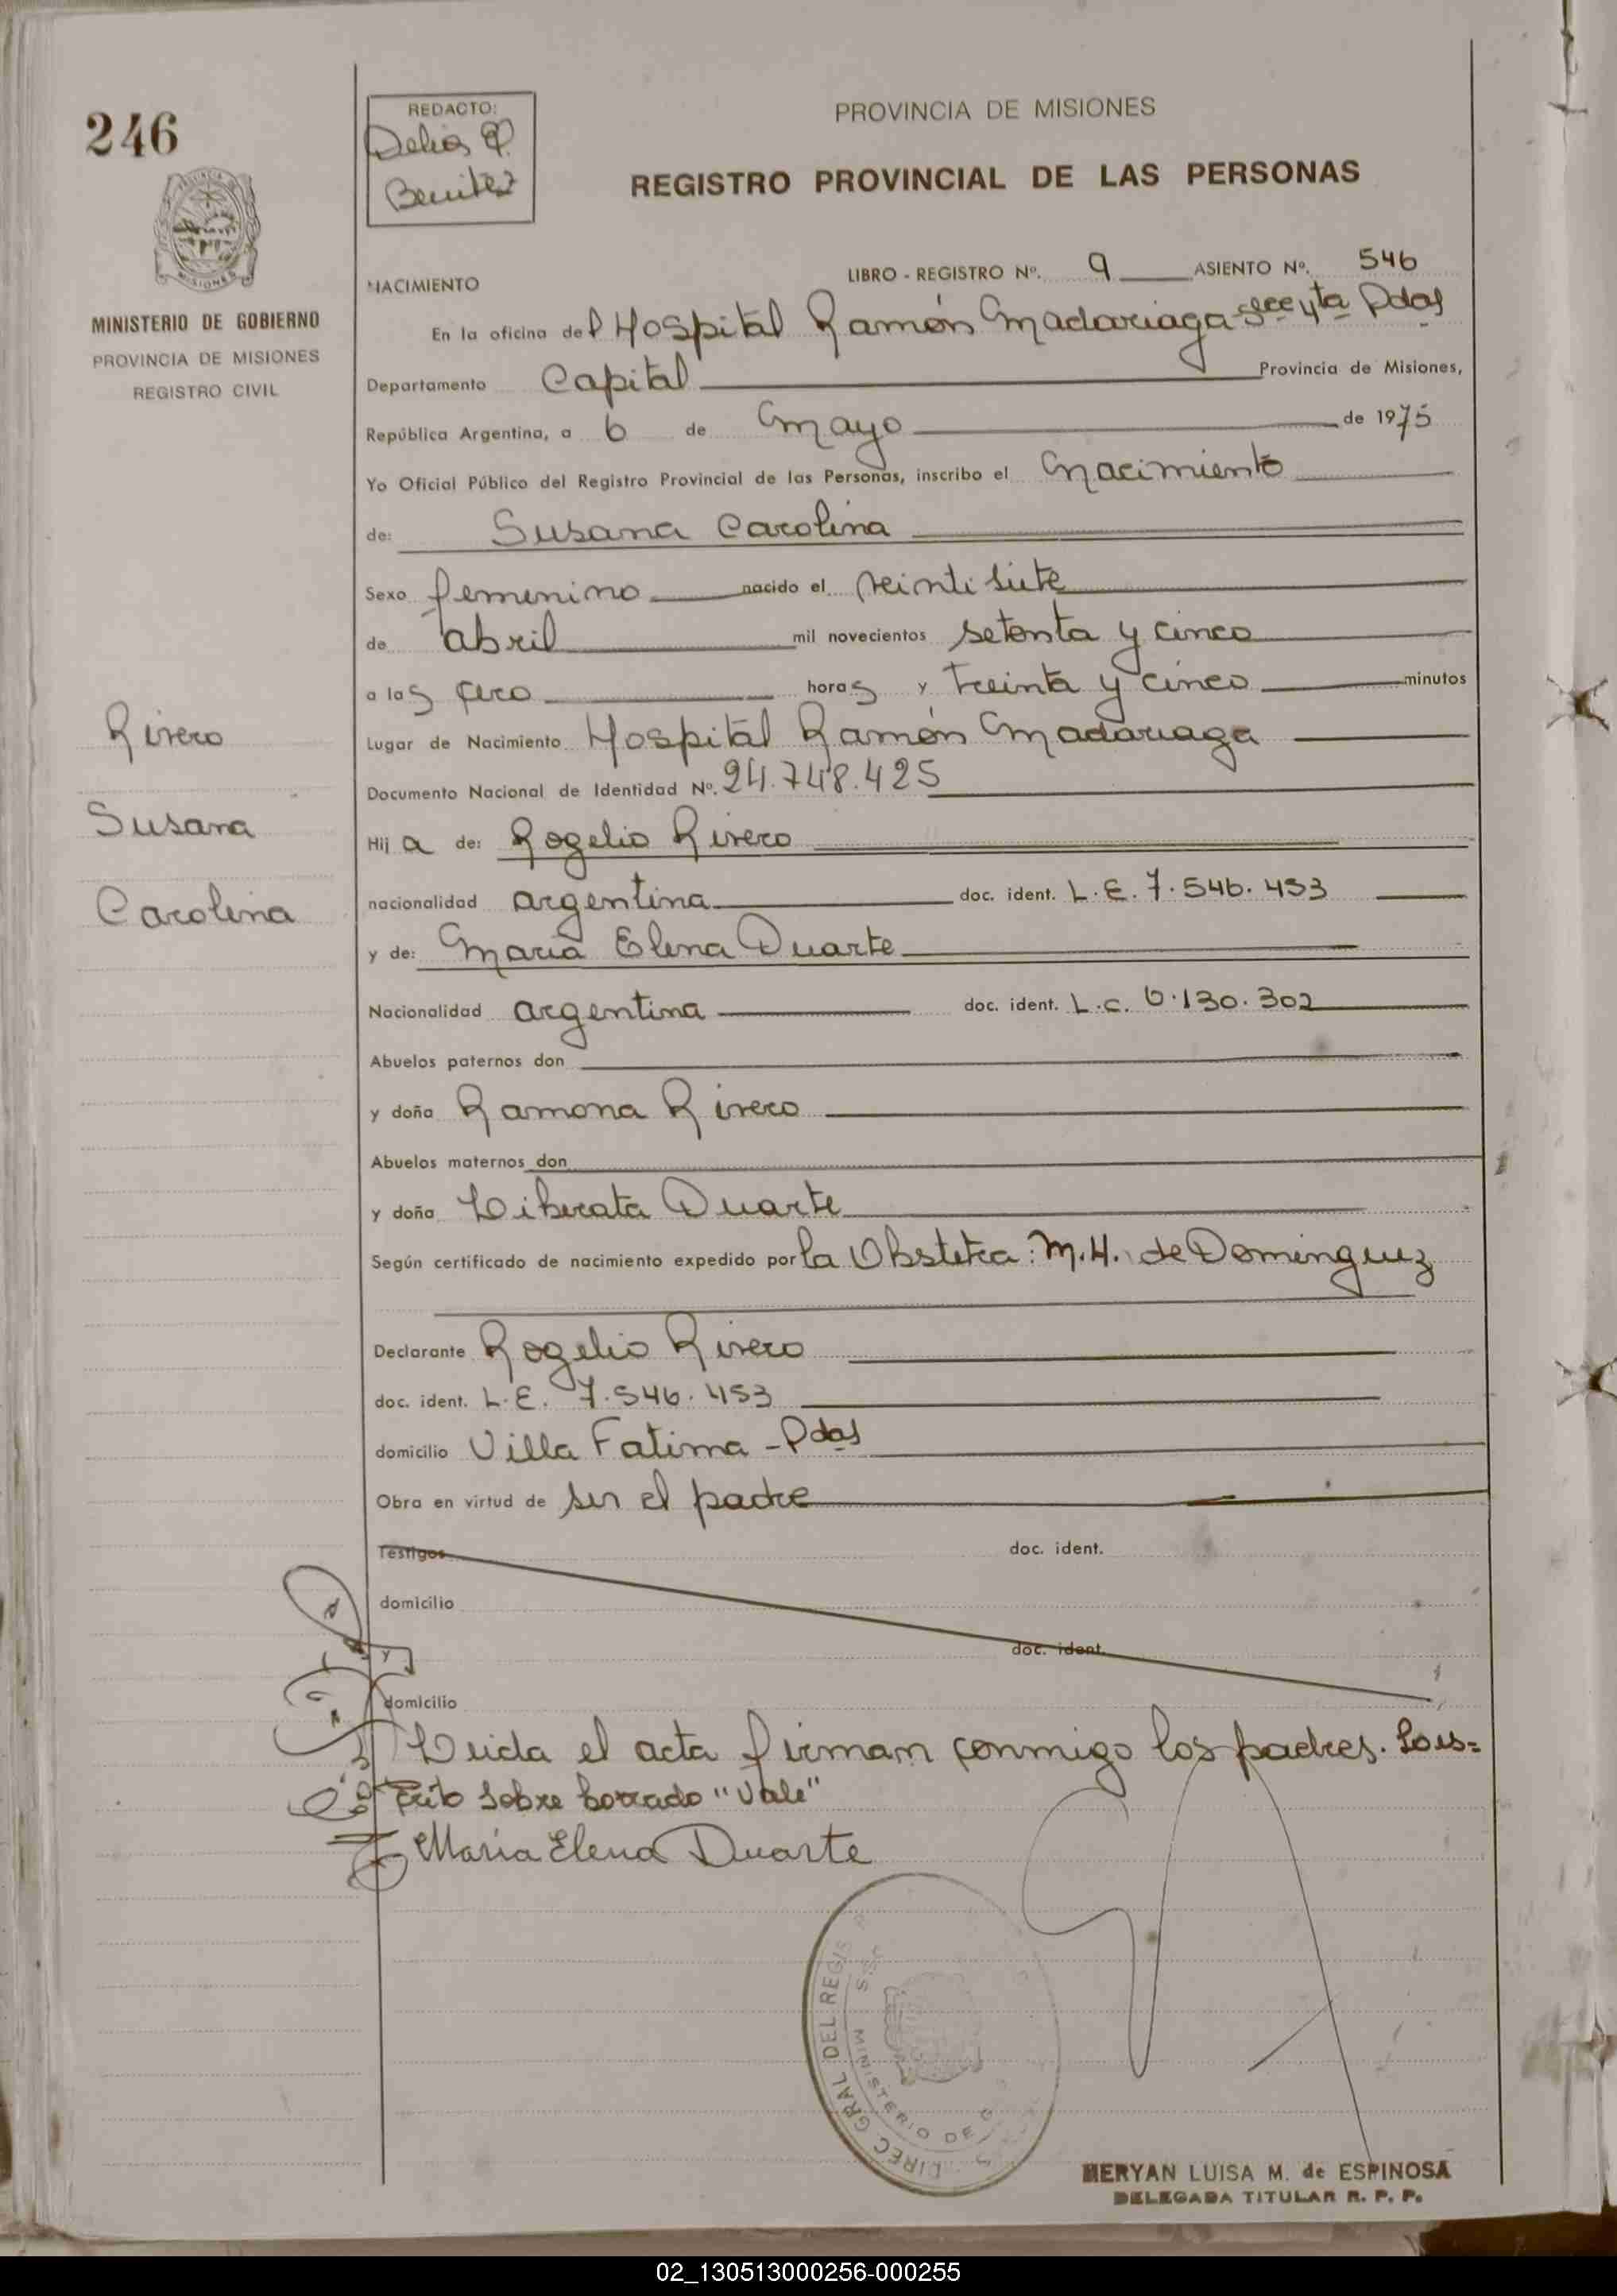 246
REDACTO:
Delia P.
Benitez
PROVINCIA DE MISIONES
REGISTRO PROVINCIAL DE LAS PERSONAS
MINISTERIO DE GOBIERNO
PROVINCIA DE MISIONES
REGISTRO CIVIL
Rivero
Susana
Carolina
NACIMIENTO
LIBRO - REGISTRO Nº. 9 ASIENTO Nº. 546
En la oficina del Hospital Ramón Madariaga Sec 4ta Pdas
Departamento Capital Provincia de Misiones,
República Argentina, a 6 de Mayo de 1975
Yo Oficial Público del Registro Provincial de las Personas, inscribo el Nacimiento
de: Susana Carolina
Sexo femenino nacido el veintisiete
de abril mil novecientos setenta y cinco
a las cero horas y treinta y cinco minutos
Lugar de Nacimiento Hospital Ramón Madariaga
Documento Nacional de Identidad Nº. 24.748.425
Hija de: Rogelio Rivero
nacionalidad argentina doc. ident. L.E. 7.546.453
y de: María Elena Duarte
Nacionalidad argentina doc. ident. L.C. 6.130.302
Abuelos paternos don
y doña Ramona Rivero
Abuelos maternos don
y doña Liberata Duarte
Según certificado de nacimiento expedido por la Obstetra: M.H. de Dominguez
Declarante Rogelio Rivero
doc. ident. L.E. 7.546.453
domicilio Villa Fatima - Pdas
Obra en virtud de ser el padre
Testigos doc. ident.
domicilio
y doc. ident.
domicilio
Leida el acta firman conmigo los padres. Lo es=
crito sobre borrado "Vale"
María Elena Duarte
DIREC GRAL DEL REGIS
MINISTERIO DE G
MERYAN LUISA M. de ESPINOSA
DELEGADA TITULAR R. P. P.
02_130513000256-000255